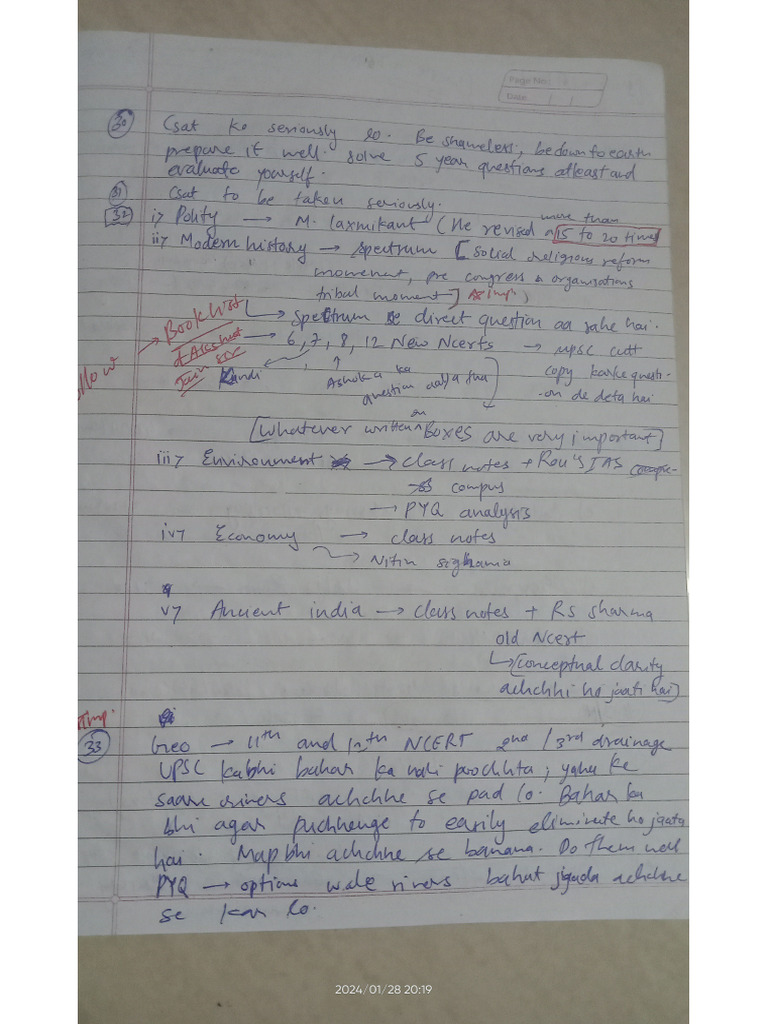 Page No.
Date
30 Csat ko seriously lo. Be shameless, be down to earth
prepare it well. solve 5 year questions atleast and
evaluate yourself.
31 Csat to be taken seriously.
32 i> Polity → M. laxmikant (He revised more than 15 to 20 times
ii> Modern history → spectrum [Social religious reform
movement, pre congress organisations
tribal moment] Imp)
Booklist ↳ spectrum se direct question aa rahe hai.
→ 6, 7, 8, 12 New Ncerts → upsc cutt
Jain
Ashoka ka copy karke questi-
question aaya tha -on de deta hai
[Whatever written on Boxes are very important]
iii> Environment → class notes + Rau's IAS
compus
→ PYQ analysis
iv> Economy → class notes
→ Nitin singhania
v> Ancient india → class notes + Rs sharma
old Ncert
↳ [Conceptual clarity
achchhi ho jaati hai]
Imp.
33 Geo → 11th and 12th NCERT 2nd / 3rd drainage
UPSC kabhi bahar ka nahi poochhta; yaha ke
saare rivers achchhe se pad lo. Bahar ka
bhi agar puchhenge to easily eliminate ho jaata
hai. Map bhi achchhe se banana. Do them well
PYQ → options wale rivers bahut jyada achchhe
se kar lo.
2024/01/28 20:19